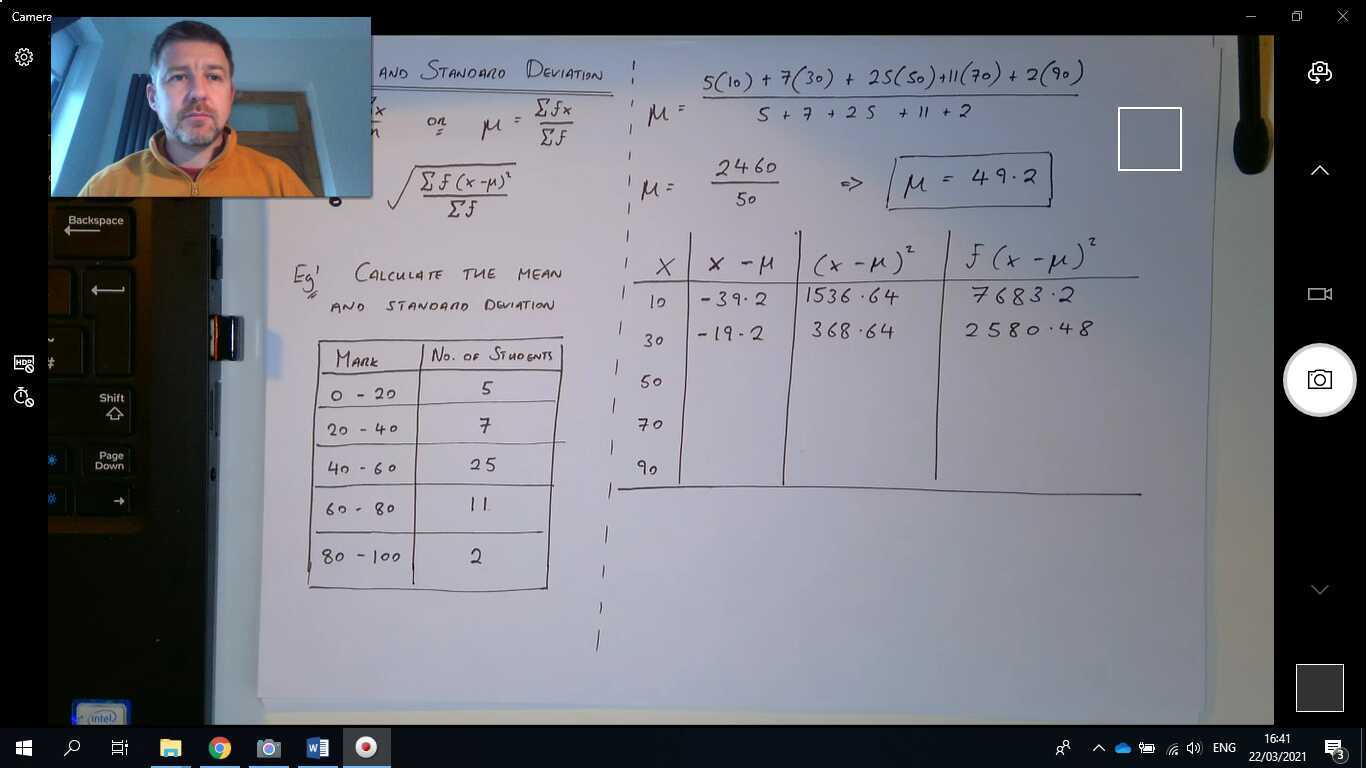 Camera
AND STANDARD DEVIATION
or μ = Σfx / Σf
√ Σf(x-μ)² / Σf
Eg' CALCULATE THE MEAN
AND STANDARD DEVIATION
MARK No. OF STUDENTS
0 - 20 5
20 - 40 7
40 - 60 25
60 - 80 11
80 - 100 2
μ = 5(10) + 7(30) + 25(50) + 11(70) + 2(90) / 5 + 7 + 25 + 11 + 2
μ = 2460 / 50 => μ = 49.2
x x - μ (x - μ)² f(x - μ)²
10 -39.2 1536.64 7683.2
30 -19.2 368.64 2580.48
50
70
90
Backspace
Shift
Page
Down
intel
HDR
ENG
16:41
22/03/2021
3